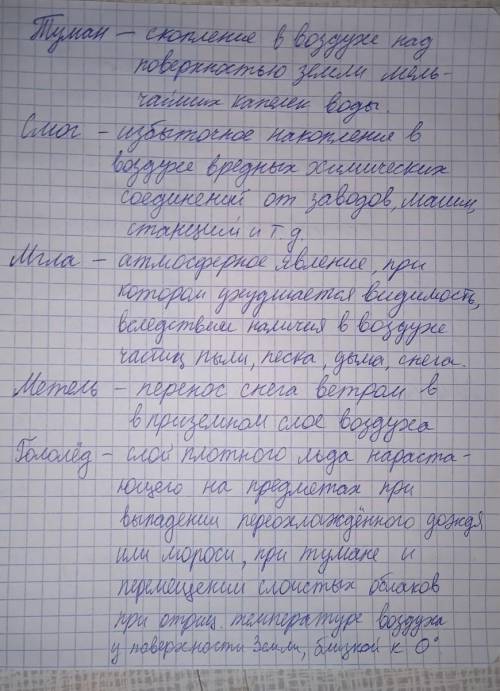 Туман – скопление в воздухе над
поверхностью земли мель-
чайших капелек воды.
Смог – избыточное накопление в
воздухе вредных химических
соединений от заводов, машин,
станций и т д
Мгла – атмосферное явление, при
котором ухудшается видимость,
вследствие наличия в воздухе
частиц пыли, песка, дыма, снега.
Метель – перенос снега ветром в
в приземном слое воздуха
Гололёд – слой плотного льда нараста-
ющего на предметах при
выпадении переохлаждённого дождя
или мороси, при тумане и
перемещении слоистых облаков
при отриц. температуре воздуха
у поверхности Земли, близкой к 0°